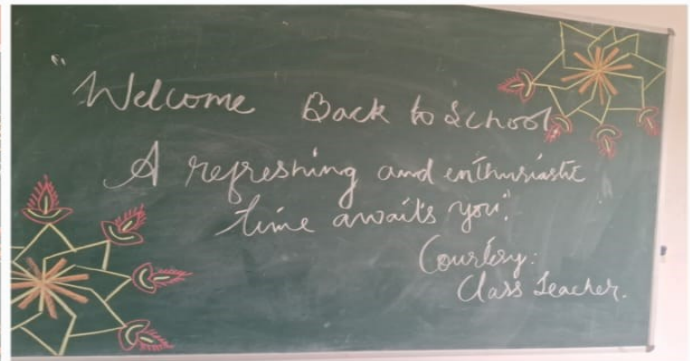 "Welcome Back to School
A refreshing and enthusiastic
time awaits you."
Courtesy:
Class Teacher.